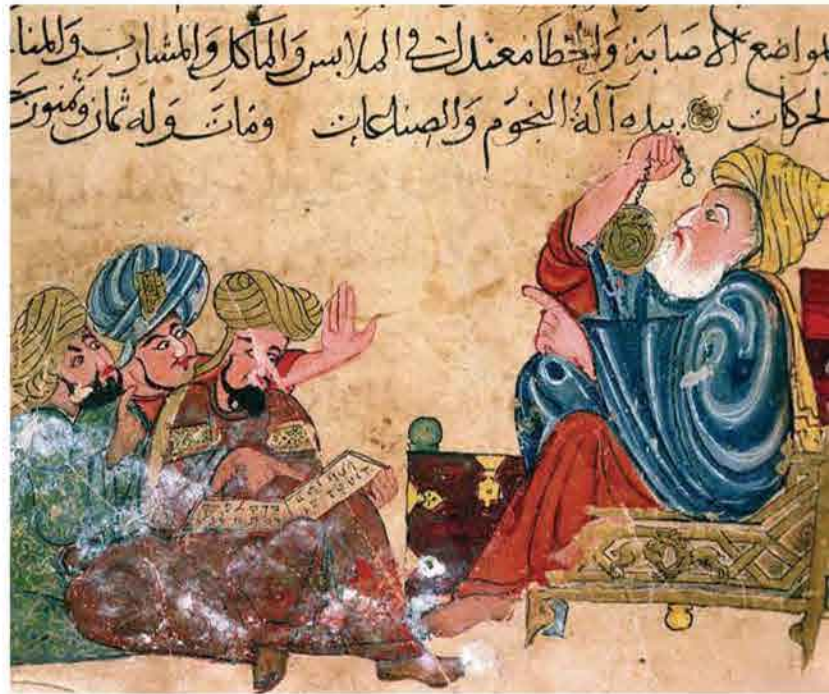 لمواضع الاصابة والخطا معتدلا في الملابس والمآكل والمشارب والمنا
الحركات بيده آلة النجوم والصناعات ومات وله ثمان وثمنون